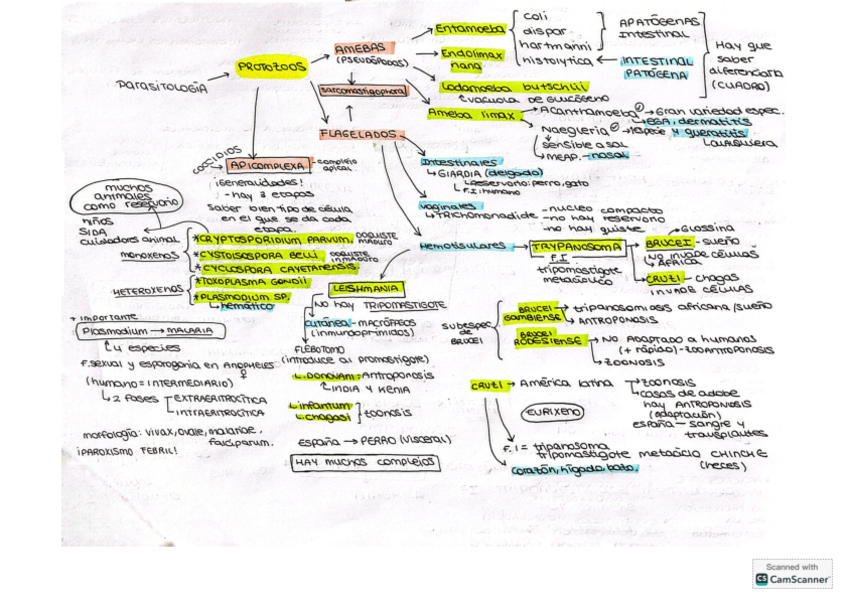 Parasitología
PROTOZOOS
AMEBAS
(PSEUDÓPODOS)
sarcomastigophora
FLAGELADOS
Entamoeba
coli
dispar
hartmanni
histolytica
APATÓGENAS
INTESTINAL
INTESTINAL
PATÓGENA
Hay que
saber
diferenciarla
(CUADRO)
Endolimax
nana
Lodamoeba butschlii
vacuola de glucógeno
Ameba limax
Acanthamoeba → Gran variedad espec.
EGA, dermatitis
y queratitis
Naegleria → 1 especie
sensible a sal
MEAP. - nasal
Intestinales
GIARDIA (delgado)
Reservorio: perro, gato
F.I: humano
vaginales
TRICHOMONADIDE
- nucleo compacto
- no hay reservorio
- no hay quiste
Hemotisulares
TRYPANOSOMA
F.I
tripomastigote
metacíclico
BRUCEI - sueño
GLOSSINA
NO INVADE CÉLULAS
ÁFRICA
CRUZI - chagas
INVADE CÉLULAS
COCCIDIOS
APICOMPLEXA
- complejo
apical
¡Generalidades!
- hay 3 etapas
saber bien tipo de célula
en el que se da cada
etapa.
muchos
animales
como reservorio
niños
SIDA
cuidadores animal
MONOXENOS
* CRYPTOSPORIDIUM PARVUM
OOQUISTE
MADURO
* CYSTOISOSPORA BELLI
OOQUISTE
INMADURO
* CYCLOSPORA CAYETANENSIS
HETEROXENOS
* TOXOPLASMA GONDII
* PLASMODIUM SP.
hemático
* importante
Plasmodium → MALARIA
4 especies
F. sexual y esporogonia en ANOPHELES ♀
(humano = INTERMEDIARIO)
2 fases
EXTRAERITROCÍTICA
INTRAERITROCÍTICA
morfología: vivax, ovale, malariae,
falciparum.
¡PAROXISMO FEBRIL!
LEISHMANIA
NO hay TRIPOMASTIGOTE
cutánea - MACRÓFAGOS
(inmunoprimidos)
FLEBOTOMO
(introduce al promastigote)
L. DONOVANI: Antroponosis
INDIA Y KENIA
L. infantum
L. chagasi
zoonosis
España → PERRO (visceral)
HAY MUCHOS COMPLEJOS
subespec.
de
BRUCEI
BRUCEI
GAMBIENSE
tripanosomiosis africana/sueño
ANTROPONOSIS
BRUCEI
RODESIENSE
NO ADAPTADO a humanos
(+ rápido) - ZOOANTROPONOSIS
ZOONOSIS
CRUZI → América latina
zoonosis
casas de adobe
hay ANTROPONOSIS
(adaptación)
España - sangre y
transplantes
EURIXENO
F.I = tripanosoma
tripomastigote metacíclico CHINCHE
(heces)
corazón, hígado, bazo.
Scanned with
CS CamScanner